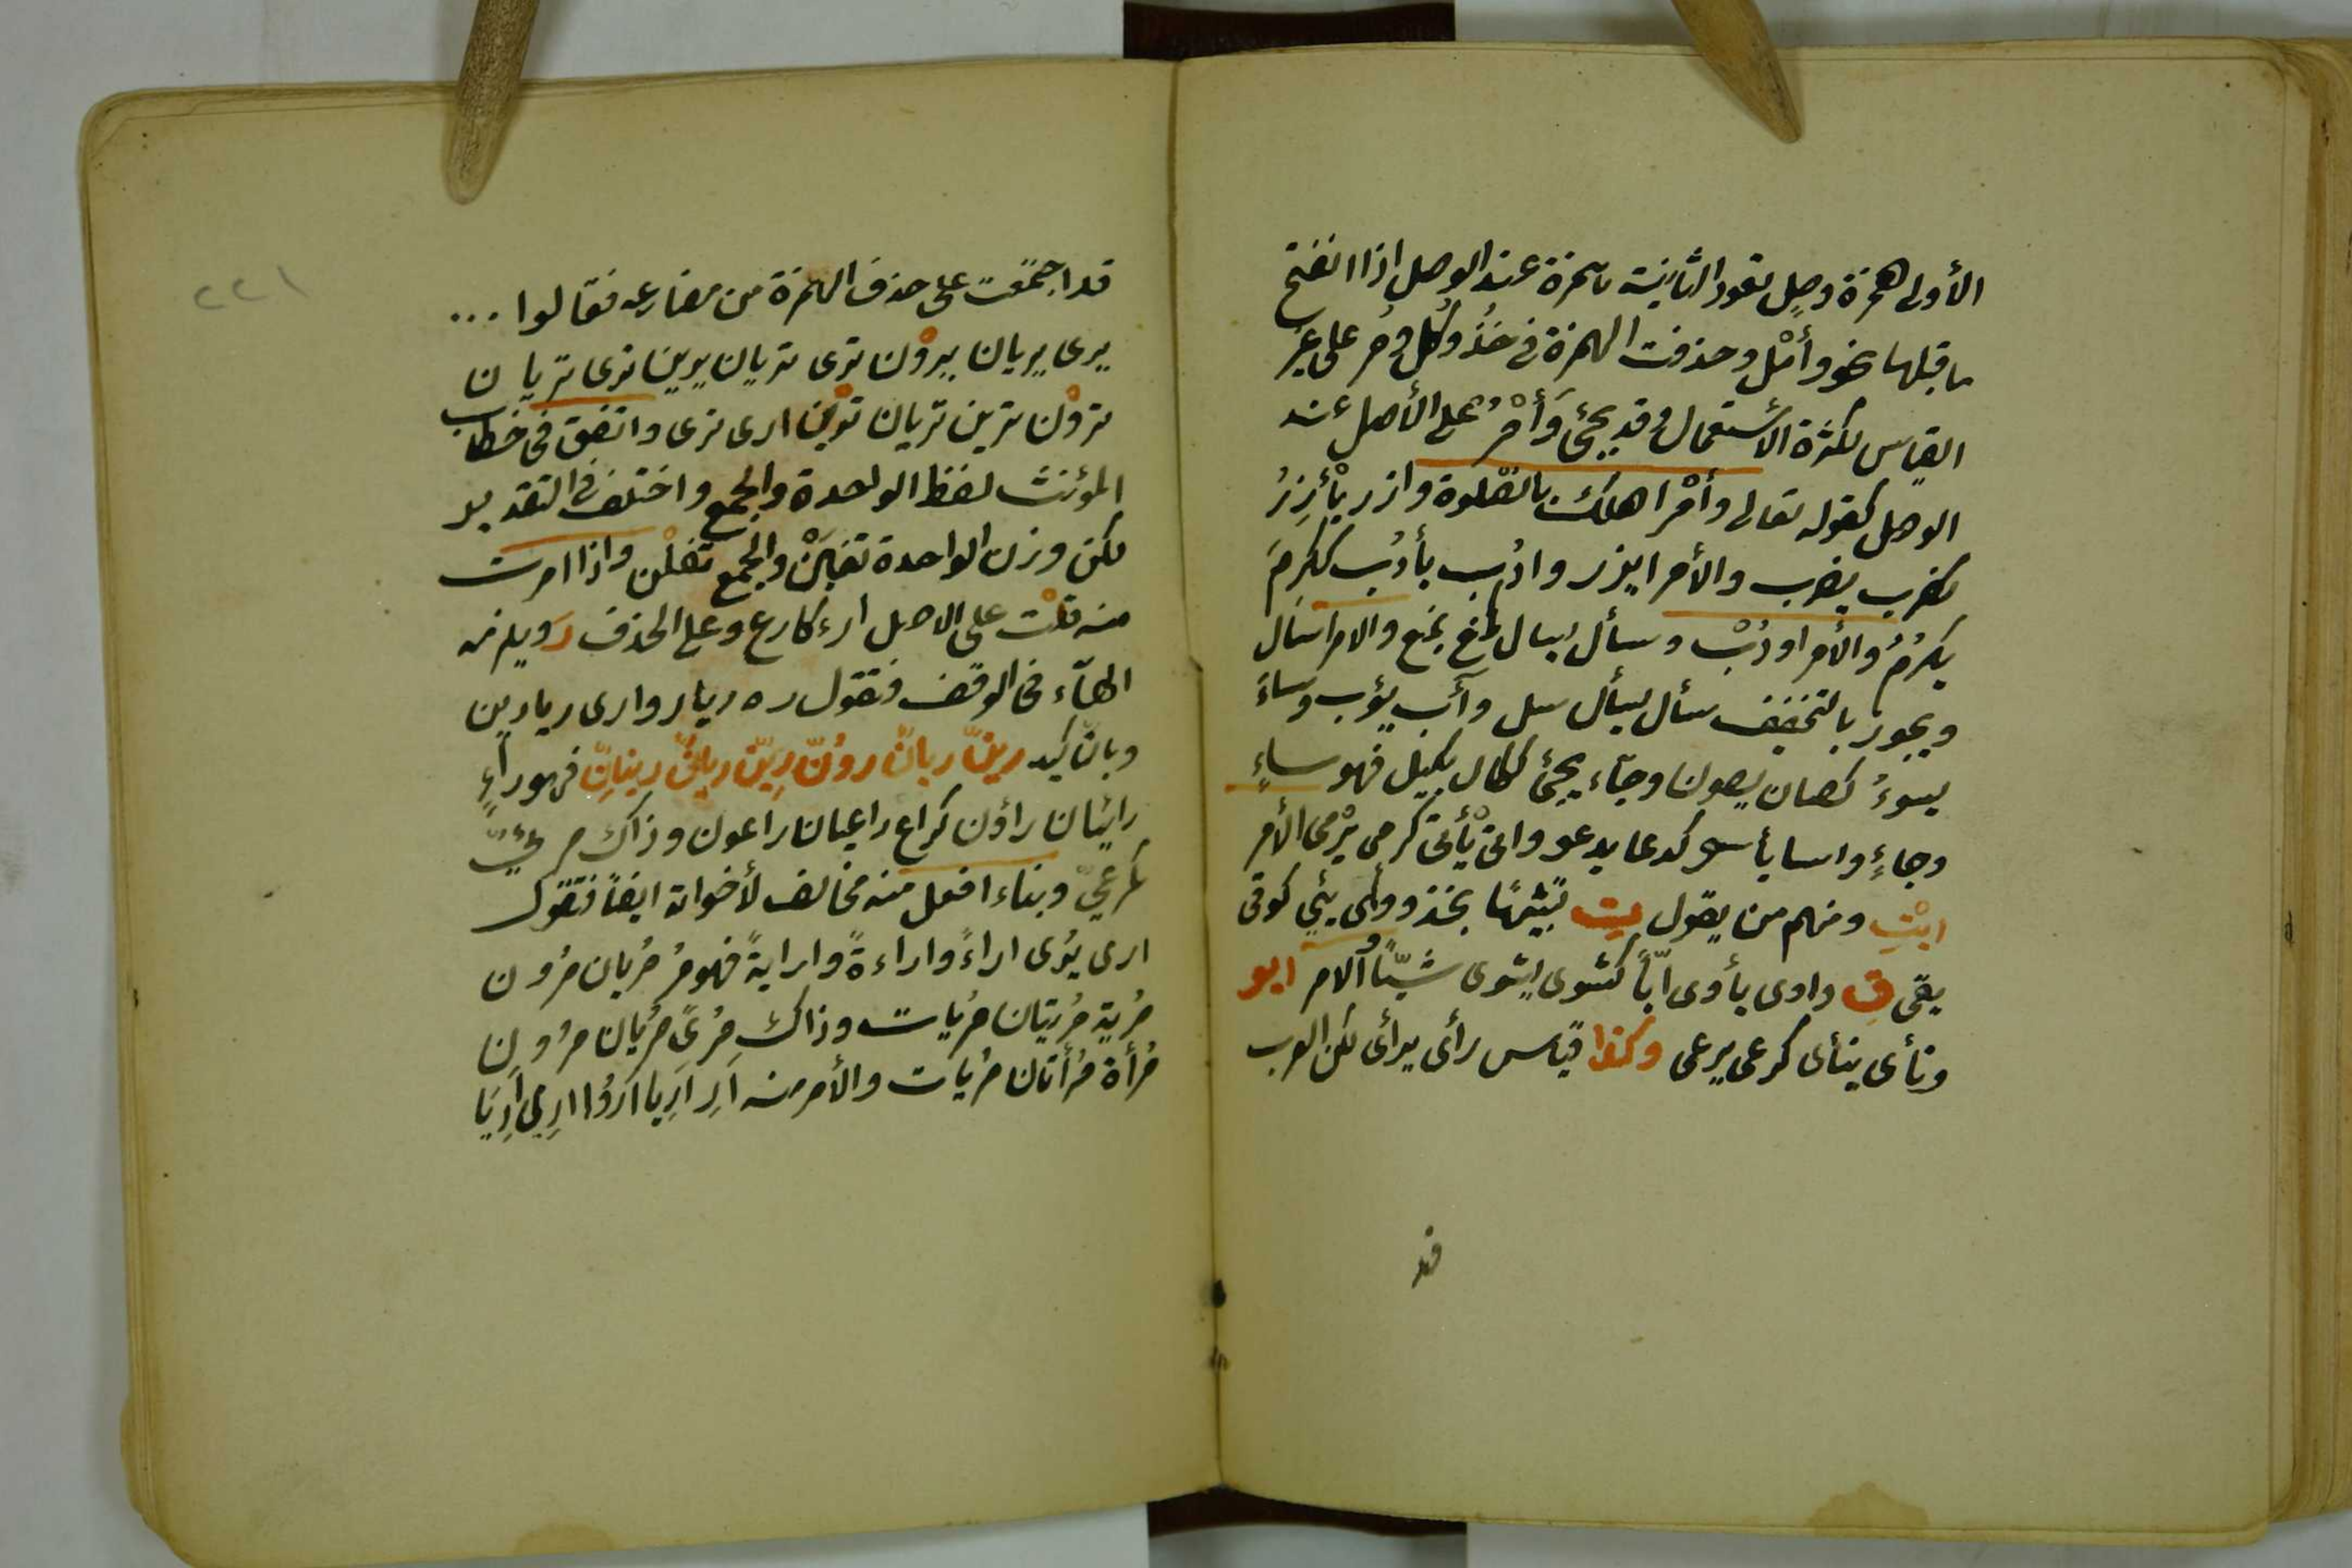 الأولى همزة وصل تعود الثانية همزة عند الوصل اذا انفتح
ما قبلها نحو وأمل وحذفت الهمزة في خذ وكل ومر على غير
القياس لكثرة الأستعمال وقد يجئ وأمر على الأصل عند
الوصل كقوله تعالى وأمر اهلك بالصلوة وازر يأزر
كضرب يضرب والأمر ايزر وادب يأدب ككرم
يكرم والأمر اودب وسأل يسال كمنع يمنع والامر اسال
ويجوز بالتخفيف سأل يسأل سل وآب يؤب وساء
يسوء كصان يصون وجآء يجئ ككال يكيل فهو ساء
وجاء واسا يأسو كدعا يدعو واتى يأتى كرمى يرمى الأمر
ايت ومنهم من يقول ت تشبيها بخذ ووأى يئي كوقى
يقى ق واوى يأوى ايّاً كشوى يشوى شيّاً الامر ايو
ونأى ينأى كرعى يرعى وكذا قياس رأى يرأى لكن العرب
قد
٢٢١
قد اجمعت على حذف الهمزة من مضارعه فقالوا ...
يرى يريان يرون ترى تريان يرين ترى تريان
ترون ترين تريان ترين ارى نرى واتفق فى خطاب
المؤنث لفظ الواحدة والجمع واختلف في التقدير
لكن وزن الواحدة تفين والجمع تفلن واذا امرت
منه قلت على الاصل ارء كارع وعلى الحذف ر ويلزمه
الهآء فى الوقف فتقول ره ريا روا رى ريا رين
وبالتأكيد رينّ ريانّ رونّ رينّ ريانّ رينانّ فهو راء
رائيان راؤن كراع راعيان راعون وذاك مرئيّ
كمرعيّ وبناء افعل منه مخالف لأخواته ايضاً فتقول
ارى يرى اراءً واراءةً وارايةً فهو مر مريان مرون
مرية مريتان مريات وذاك مرىً مريان مرون
مرأة مرأتان مريات والأمر منه ار اريا اروا ارى اريا